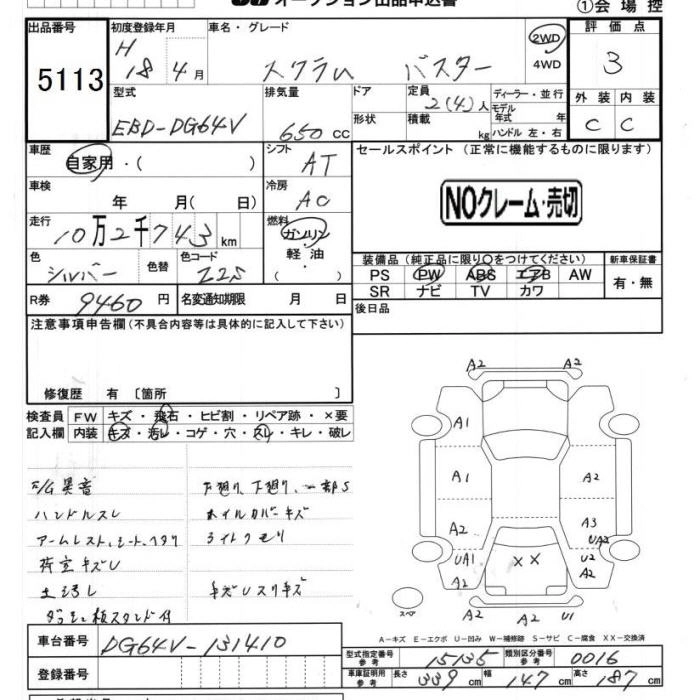 オークション出品申込書
①会場控
出品番号
初度登録年月
車名・グレード
評価点
5113
H 18年 4月
スクラム バスター
2WD
4WD
3
型式
排気量
ドア
定員
ディーラー・並行
外装
内装
EBD-DG64V
650 cc
形状
2(4)人
モデル年式 年
積載
kg
ハンドル 左・右
C
C
車歴
自家用・( )
シフト
AT
セールスポイント (正常に機能するものに限ります)
車検
年 月( 日)
冷房
AC
NOクレーム・売切
走行
10万2千743km
燃料
ガソリン
軽油
( )
色
シルバー
色替
色コード
Z2S
装備品 (純正品に限り○をつけてください)
新車保証書
PS PW ABS エアB AW
有・無
SR ナビ TV カワ
R券
9460円
名変通知期限 月 日
後日品
注意事項申告欄(不具合内容等は具体的に記入して下さい)
修復歴 有 〔箇所 〕
検査員
記入欄
FW キズ・飛石・ヒビ割・リペア跡・×要
内装 キズ・汚レ・コゲ・穴・スレ・キレ・破レ
E/G異音
ハンドルスレ
アームレスト、シートヘタリ
荷室キズU
土汚レ
ダッシュ板スタンド付
下廻り、下廻り、一部S
ホイルカバーキズ
ライトクモリ
キズUスリキズ
A2 A2
A1
A1 A2
A2 A3
UA2
UA1 ×× U2
A2 A2
スペア
A2 A2 U1
A-キズ E-エクボ U-凹み W-補修跡 S-サビ C-腐食 XX-交換済
車台番号
DG64V-131410
登録番号
型式指定番号 参考
15135
類別区分番号 参考
0016
車庫証明用 参考
長さ 339cm
幅 147cm
高さ 187cm